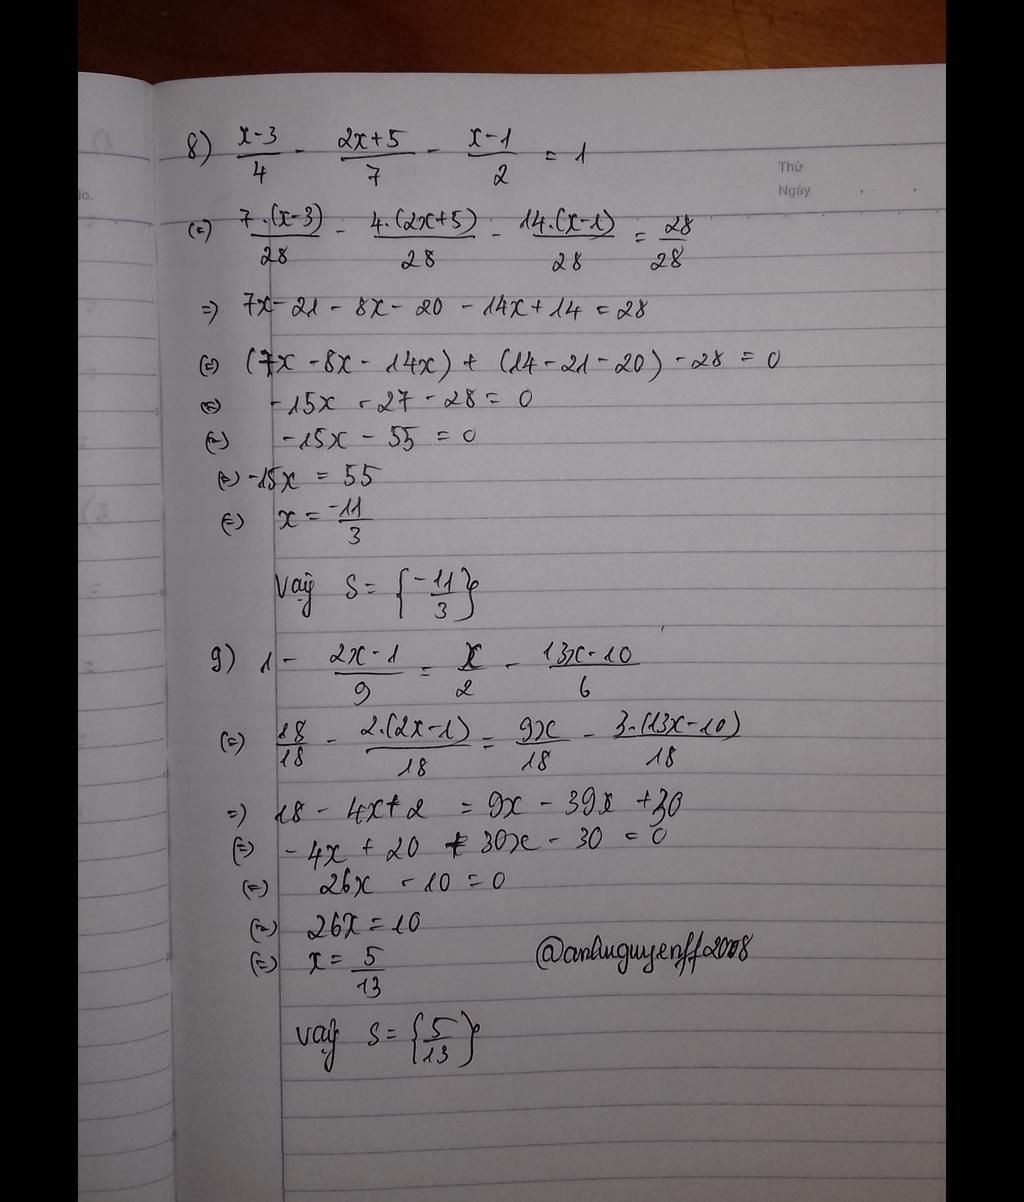 8) \frac{x-3}{4} - \frac{2x+5}{7} - \frac{x-1}{2} = 1
Thứ
Ngày
(=) \frac{7.(x-3)}{28} - \frac{4.(2x+5)}{28} - \frac{14.(x-1)}{28} = \frac{28}{28}
=) 7x - 21 - 8x - 20 - 14x + 14 = 28
(=) (7x - 8x - 14x) + (14 - 21 - 20) - 28 = 0
(=) -15x - 27 - 28 = 0
(=) -15x - 55 = 0
(=) -15x = 55
(=) x = \frac{-11}{3}
Vậy S = {\frac{-11}{3}}
9) 1 - \frac{2x-1}{9} = \frac{x}{2} - \frac{13x-10}{6}
(=) \frac{18}{18} - \frac{2.(2x-1)}{18} = \frac{9x}{18} - \frac{3.(13x-10)}{18}
=) 18 - 4x + 2 = 9x - 39x + 30
(=) -4x + 20 + 30x - 30 = 0
(=) 26x - 10 = 0
(=) 26x = 10
(=) x = \frac{5}{13}
@anhnguyenff2008
Vậy S = {\frac{5}{13}}